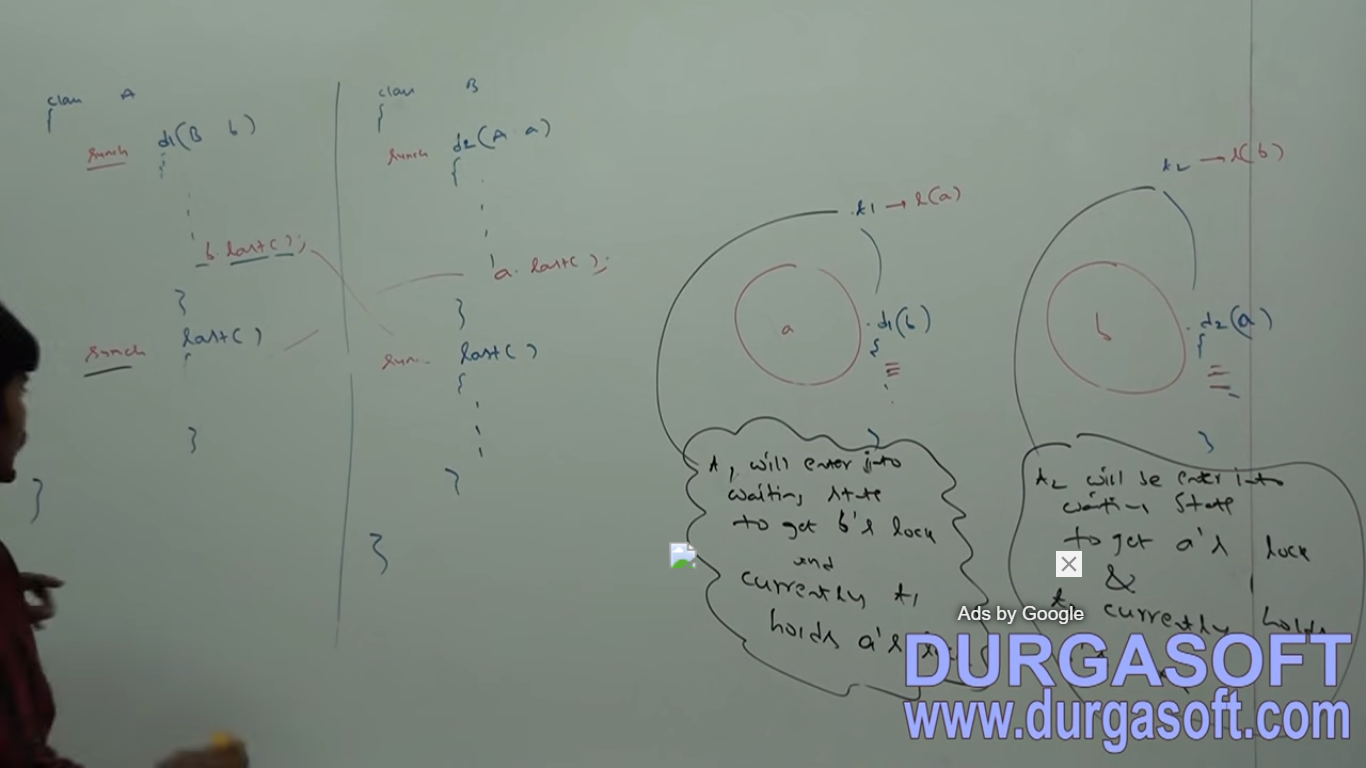 class A
{
synch d1(B b)
{
b.last();
}
synch last()
{
}
}
class B
{
synch d2(A a)
{
a.last();
}
last()
{
}
}
t1 → l(a)
a
d1(b)
{
}
t1 will enter into
waiting state
to get b's lock
and
currently t1
holds a's
t2 → l(b)
b
d2(a)
{
}
t2 will be enter into
waiting state
to get a's lock
&
currently holds
Ads by Google
DURGASOFT
www.durgasoft.com